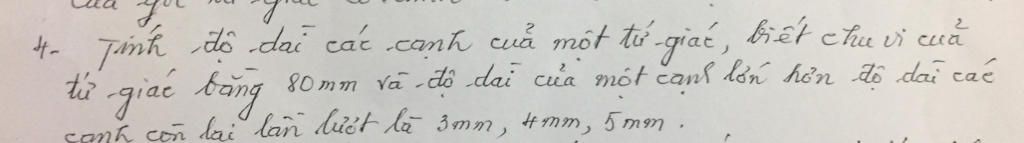 của
4- Tính độ dài các cạnh của một tứ giác, biết chu vi của
tứ giác bằng 80mm và độ dài của một cạnh lớn hơn độ dài các
cạnh còn lại lần lượt là 3mm, 4mm, 5mm.